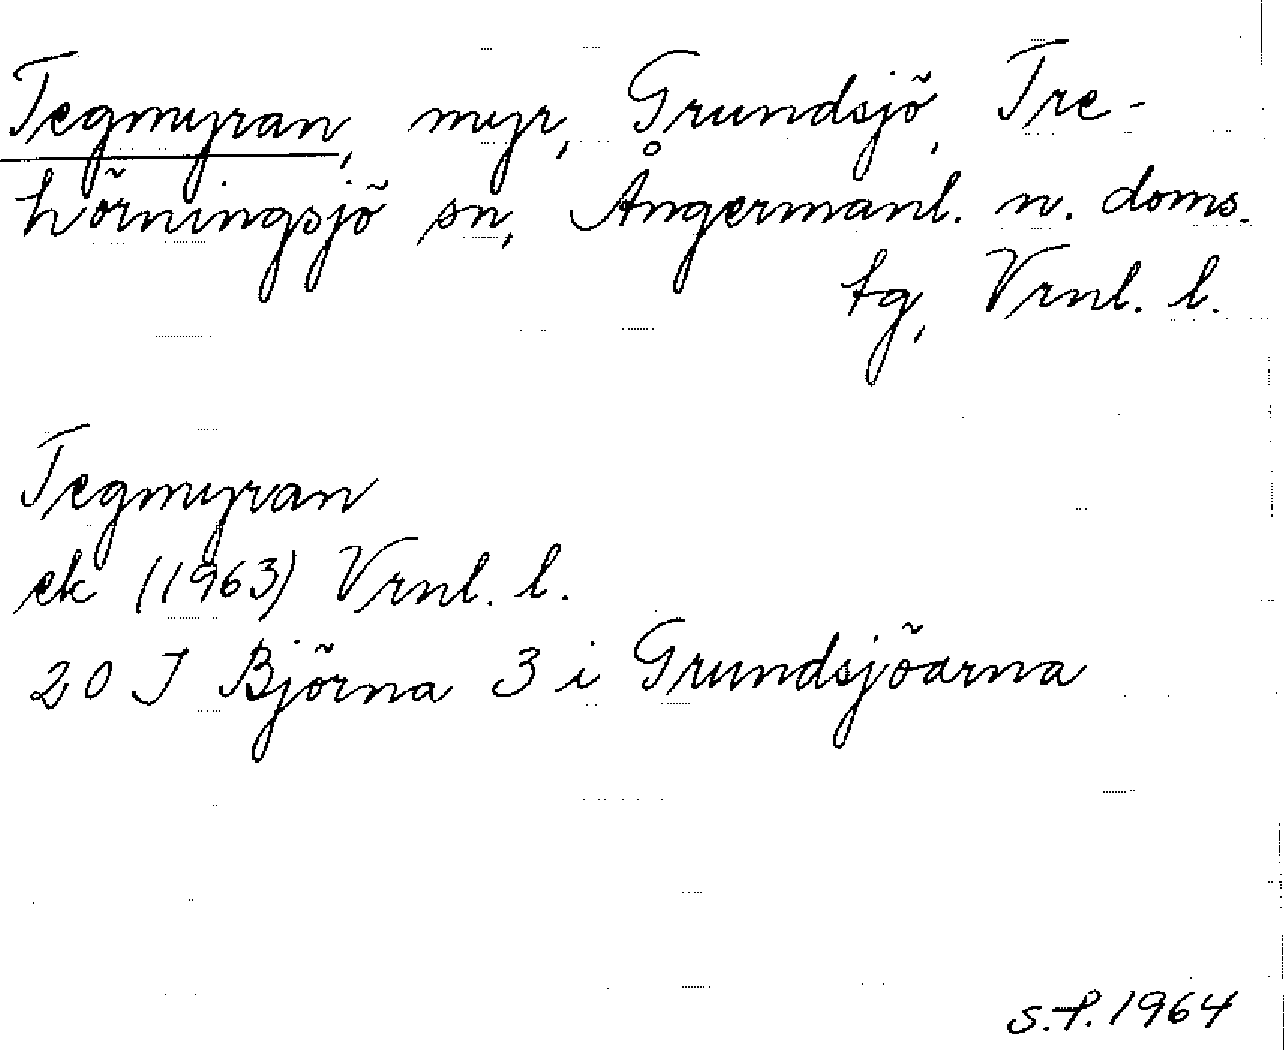 Tegmyran, myr, Grundsjö, Tre-
hörningsjö sn, Ångermanl. n. doms.
tg, Vrnl. l.
Tegmyran
ek (1963) Vrnl. l.
20 J Björna 3 i Grundsjöarna
1964